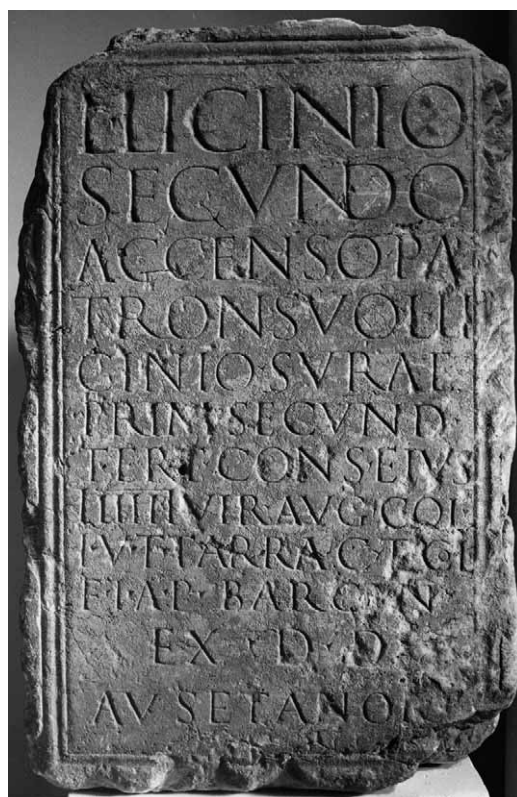 L LICINIO
SECVNDO
ACCENSO PA
TRON SVO L LI
CINIO SVRAE
PRIM SECVND
TERT CONS EIVS
IIIIII VIR AVG COL
I V T TARRAC ET COL
F I A P BARCIN
EX D D
AVSETANOR